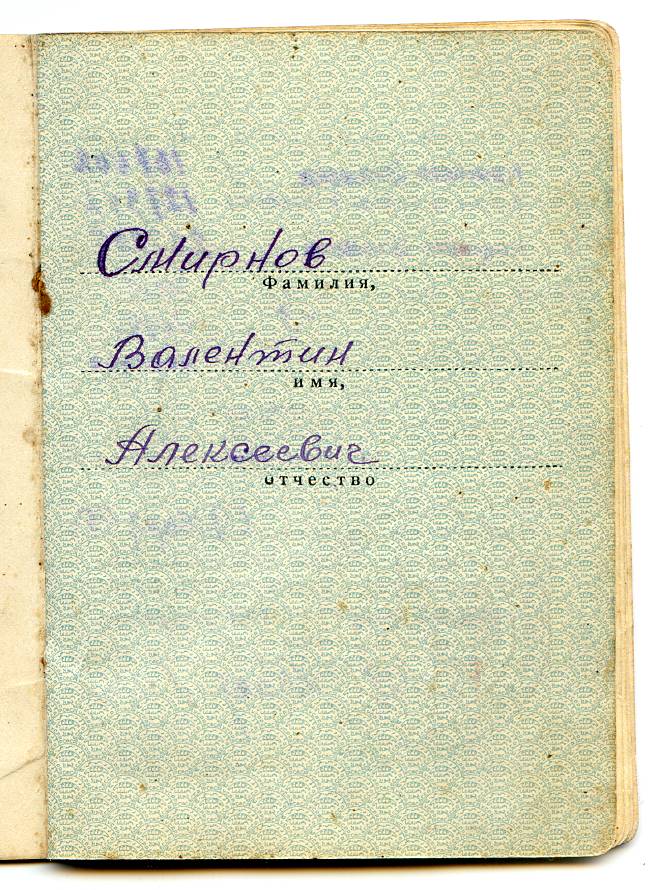 Смирнов
Фамилия,
Валентин
имя,
Алексеевич
отчество